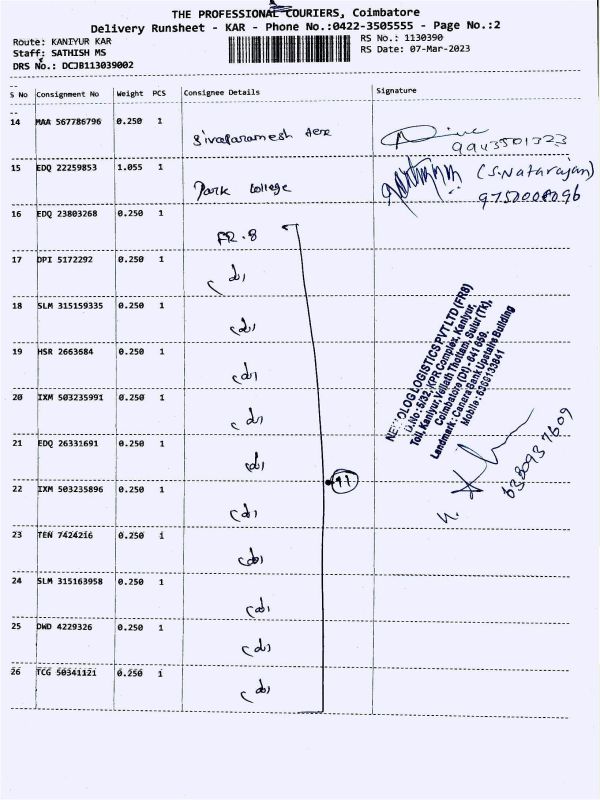 THE PROFESSIONAL COURIERS, Coimbatore
Delivery Runsheet - KAR - Phone No.:0422-3505555 - Page No.:2
Route: KANIYUR KAR
RS No.: 1130390
Staff: SATHISH MS
RS Date: 07-Mar-2023
DRS No.: DCJB113039002
S No Consignment No Weight PCS Consignee Details Signature
14 MAA 567786796 0.250 1
9943501323
15 EDQ 22259853 1.055 1 Park College
(S.Natarajan)
16 EDQ 23803268 0.250 1 FR-8
17 DPI 5172292 0.250 1
18 SLM 315159335 0.250 1
19 HSR 2663684 0.250 1
20 IXM 503235991 0.250 1
21 EDQ 26331691 0.250 1
22 IXM 503235896 0.250 1
23 TEN 7424216 0.250 1
24 SLM 315163958 0.250 1
25 DWD 4229326 0.250 1
26 TCG 50341121 0.250 1
11
LOGISTICS PVT LTD (FR8)
D.No: 5/32, KPR Complex, Kaniyur,
Toll, Kaniyur, Vellath Thottam, Sulur (TK),
Coimbatore (Dt) - 641 659.
Landmark: Canara Bank Upstairs Building
Mobile: 6300133841
6380937609